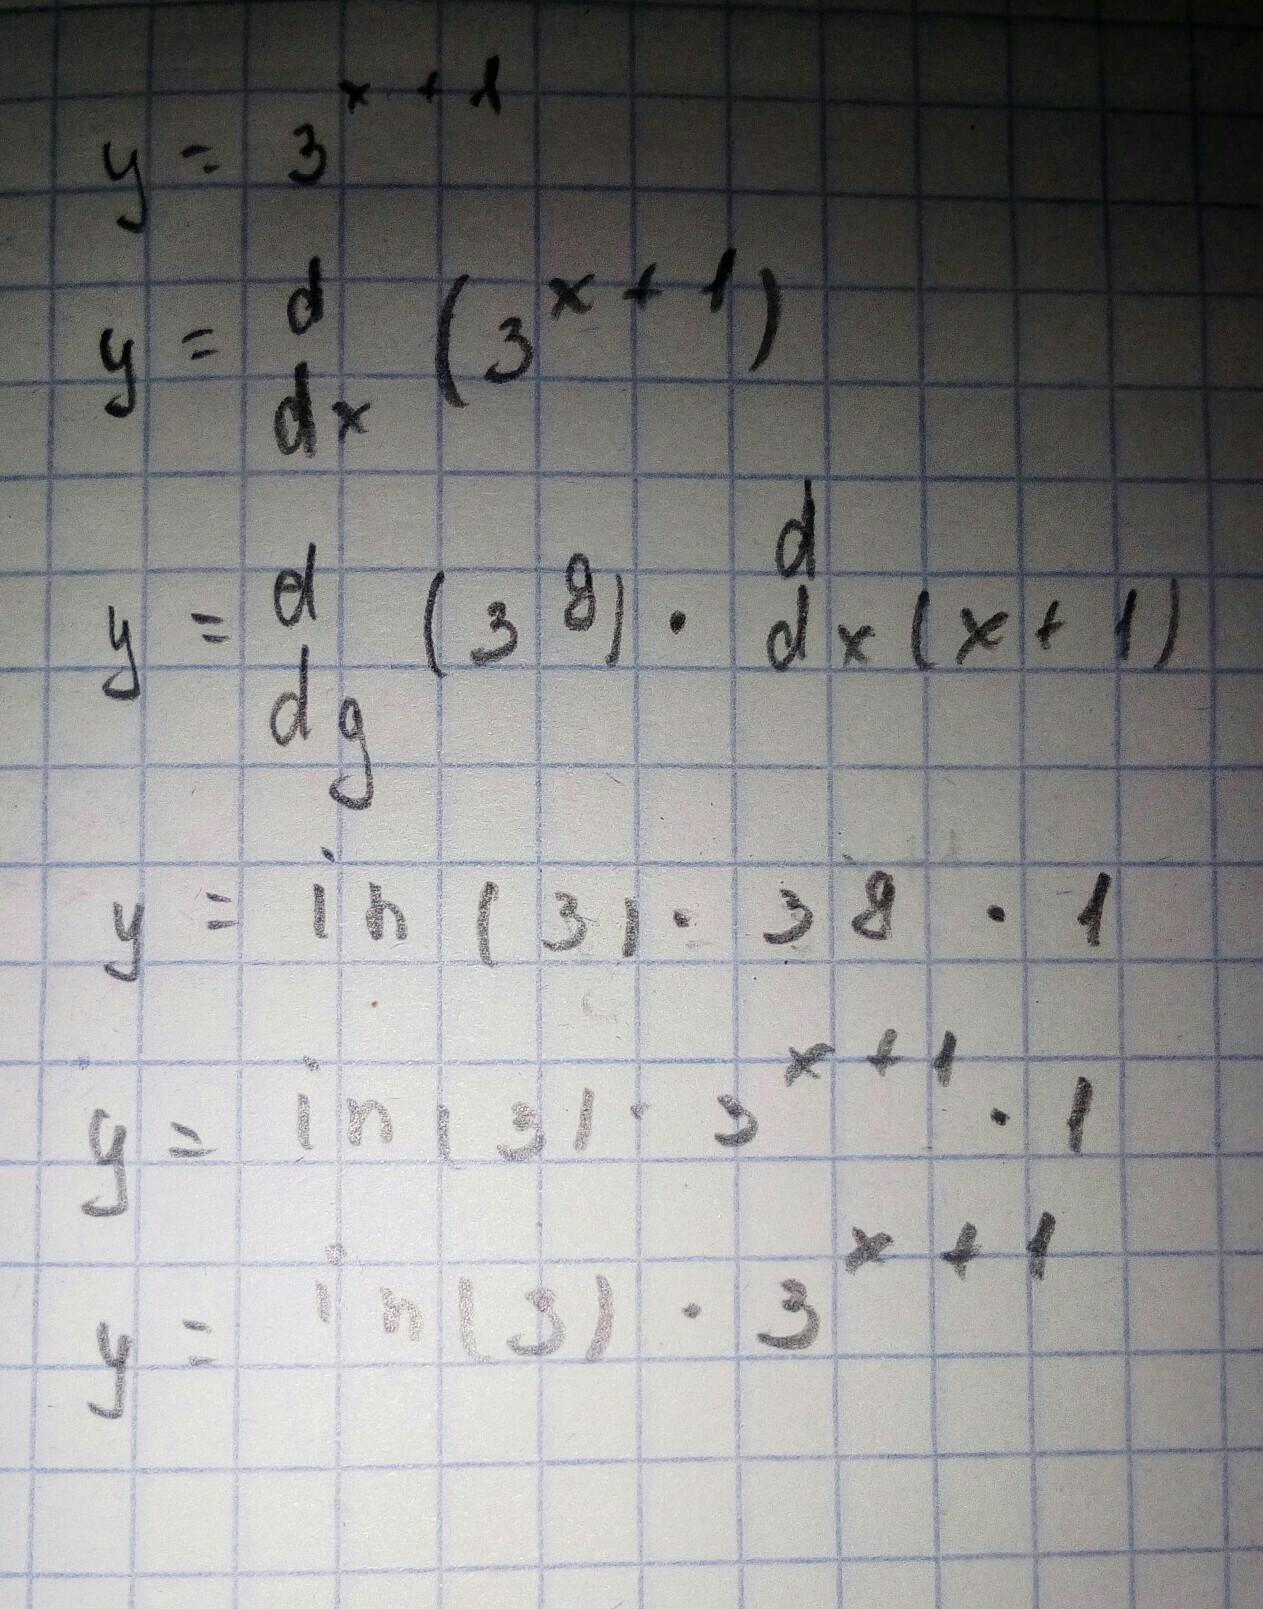 y = 3^{x + 1}
y = d/dx (3^{x + 1})
y = d/dg (3^{g}) · d/dx (x + 1)
y = in (3) · 3 g · 1
y = in (3) · 3^{x + 1} · 1
y = in (3) · 3^{x + 1}